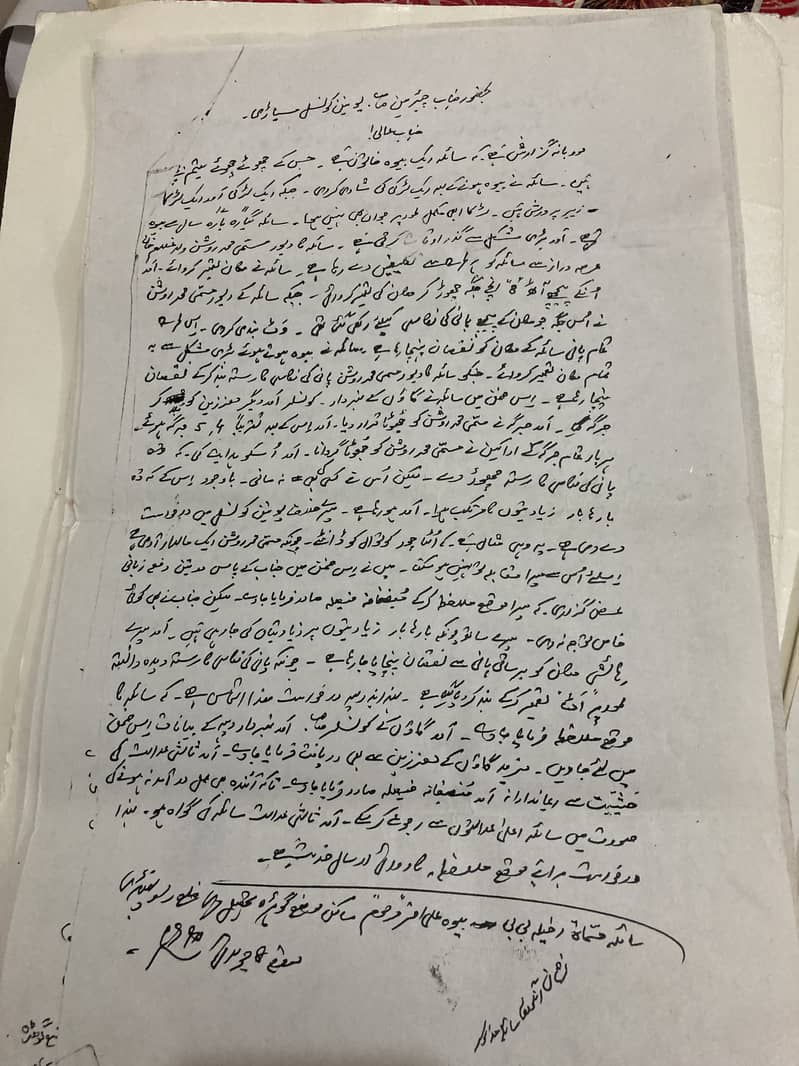 بحضور جناب چیئرمین صاحب یونین کونسل سیاڑی۔
جناب عالی!
مودبانہ گزارش ہے۔ کہ سائلہ ایک بیوہ خاتون ہے۔ جس کے چھوٹے چھوٹے یتیم بچے
ہیں۔ سائلہ نے بیوہ ہونے کے بعد ایک لڑکی کی شادی کردی۔ جبکہ ایک لڑکی اور ایک لڑکا
زیر پرورش ہیں۔ لڑکا ابھی مکمل طور پر جوان بھی نہیں ہوا۔ سائلہ گیارہ بارہ سال سے بیوہ
ہے۔ اور بڑی مشکل سے گذر اوقات کرتی ہے۔ سائلہ کا دیور مسمی محمد روشن ولد
عرصہ دراز سے سائلہ کو ہر طرح سے تکلیف دے رہا ہے۔ سائلہ نے مکان تعمیر کروائے۔ اور
انکے پیچھے اپنی جگہ چھوڑ کر مکان کی تعمیر کروائی۔ جبکہ سائلہ کے دیور مسمی محمد روشن
نے اُس جگہ جو مکان کے پیچھے پانی کی نکاسی کیلئے رکھی گئی تھی۔ بند کردی۔ اس طرح
تمام پانی سائلہ کے مکان کو نقصان پہنچا رہا ہے۔ سائلہ نے بیوہ ہوتے ہوئے بڑی مشکل سے یہ
تمام مکان تعمیر کروائے۔ جبکہ سائلہ کا دیور مسمی محمد روشن پانی کی نکاسی کا رستہ بند کرکے نقصان
پہنچا رہا ہے۔ اس ضمن میں سائلہ نے گاؤں کے نمبردار۔ کونسلر اور دیگر معززین کو کر
جرگہ۔ اور جرگہ نے مسمی محمد روشن کو جھوٹا قرار دیا۔ اور اس کے بعد تقریباً 4، 5 جرگہ ہوئے۔
ہر بار تمام جرگہ کے اراکین نے مسمی محمد روشن کو جھوٹا گردانا۔ اور اُسکو ہدایت کی۔ کہ وہ
پانی کی نکاسی کا رستہ چھوڑ دے۔ لیکن اُس نے کسی کی نہ مانی۔ باوجود اس کے کہ وہ
بارہا بار زیادتیوں کا مرتکب ہوا۔ اور ہورہا ہے۔ میرے خلاف یونین کونسل میں درخواست
دے دی ہے۔ یہ وہی مثال ہے۔ کہ اُلٹا چور کوتوال کو ڈانٹے۔ چونکہ مسمی محمد روشن ایک مالدار آدمی ہے
اسلئے اُس سے میرا مقابلہ نہیں ہو سکتا۔ میں نے اس ضمن میں جناب کے پاس دفع زبانی
عرض گزاری۔ کہ میرا موقع ملاحظہ کرکے منصفانہ فیصلہ صادر فرمایا جاوے۔ لیکن جناب نے بھی کوئی
خاص توجہ نہ دی۔ میرے ساتھ چونکہ بارہا بار زیادتیوں پر زیادتیاں کی جارہی ہیں۔ اور میرے
رہائشی مکان کو برساتی پانی سے نقصان پہنچایا جارہا ہے۔ چونکہ پانی کی نکاسی کا رستہ دیدہ دانستہ
طور پر تعمیر کرکے بند کردیا گیا ہے۔ لہذا بذریعہ درخواست ھذا التماس ہے۔ کہ سائلہ کا
موقع ملاحظہ فرمایا جاوے۔ اور گاؤں کے کونسلر صاحب اور نمبردار دیہہ کے بیانات اس ضمن
میں لئے جاویں۔ مزید گاؤں کے معززین سے بھی دریافت فرمایا جاوے۔ اور ثالثی عدالت کی
حیثیت سے اور منصفانہ فیصلہ صادر فرمایا جاوے۔ تاکہ آئندہ عمل درآمد نہ ہونے کی
صورت میں سائلہ اعلیٰ عدالتوں سے رجوع کرسکے۔ اور ثالثی عدالت سائلہ کی گواہ ہو۔ لہذا
درخواست برائے موقع ملاحظہ و کاروائی ارسال خدمت ہے۔
سائلہ مسماۃ بی بی بیوہ علی مرحوم ساکن موضع تحصیل ضلع